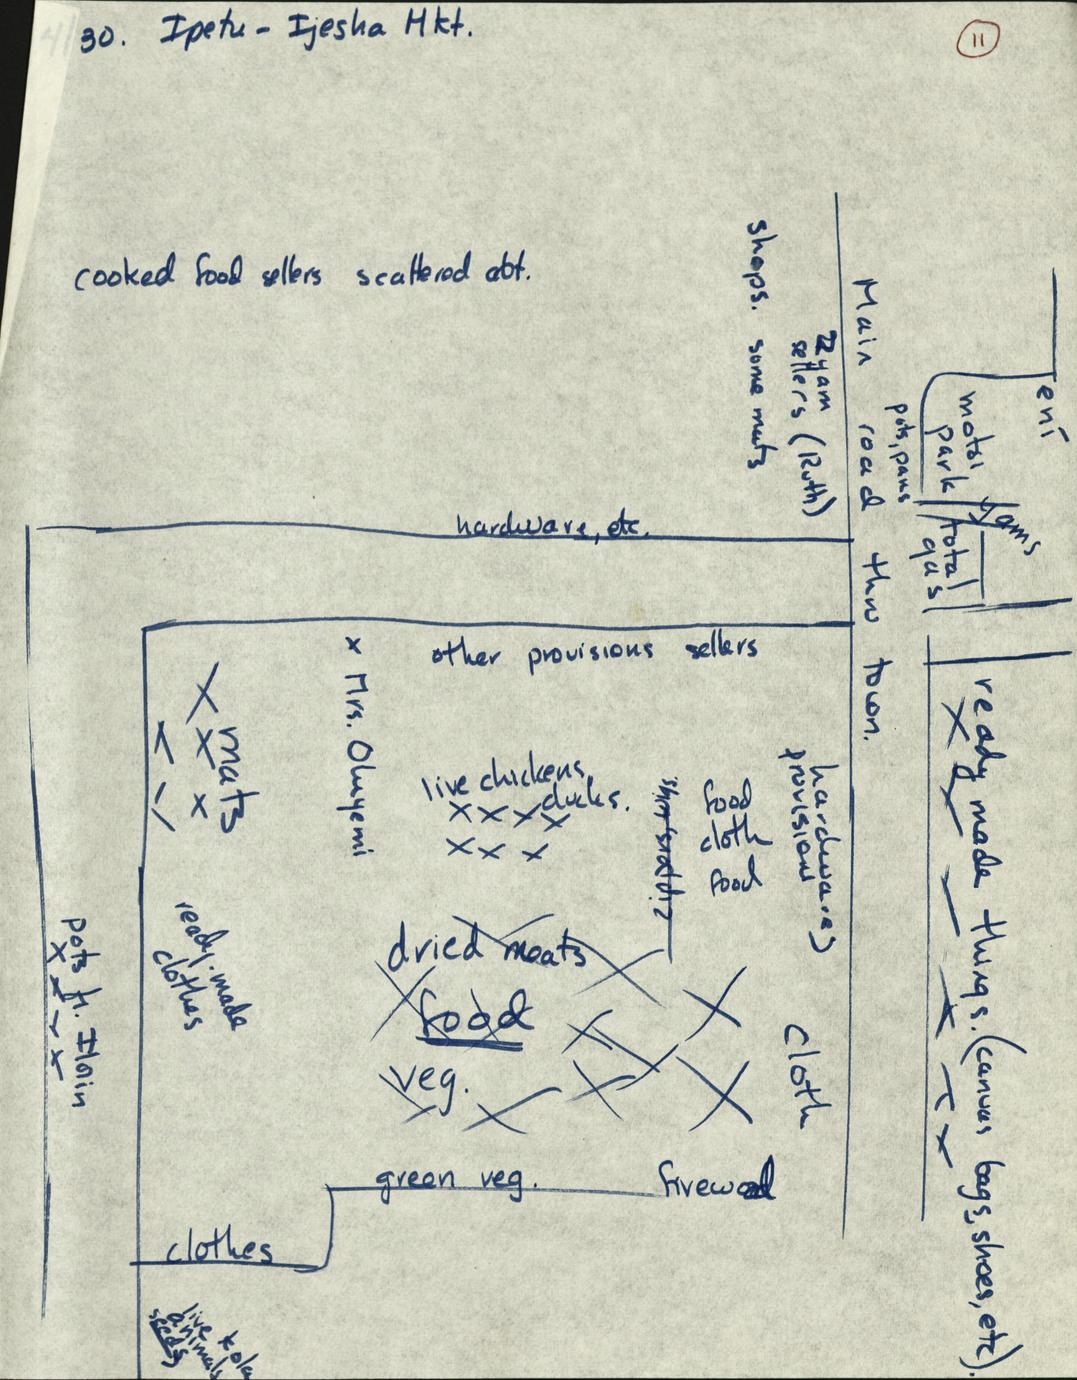 4/30. Ipetu-Ijesha Mkt.
11
cooked food sellers scattered abt.
shops. some mats
yam
sellers (Ruth)
Main road thru town.
pots, pans
motor
park
eni
yams
total
gas
hardware, etc.
other provisions sellers
x Mrs. Oluyemi
mats
live chickens,
ducks.
food
cloth
food
hardwares
provisions
ready made things. (canvas bags, shoes, etc).
pots fr. Ilorin
ready-made
clothes
dried meats
food
veg.
cloth
green veg.
firewood
clothes
live
animals
kola
seeds